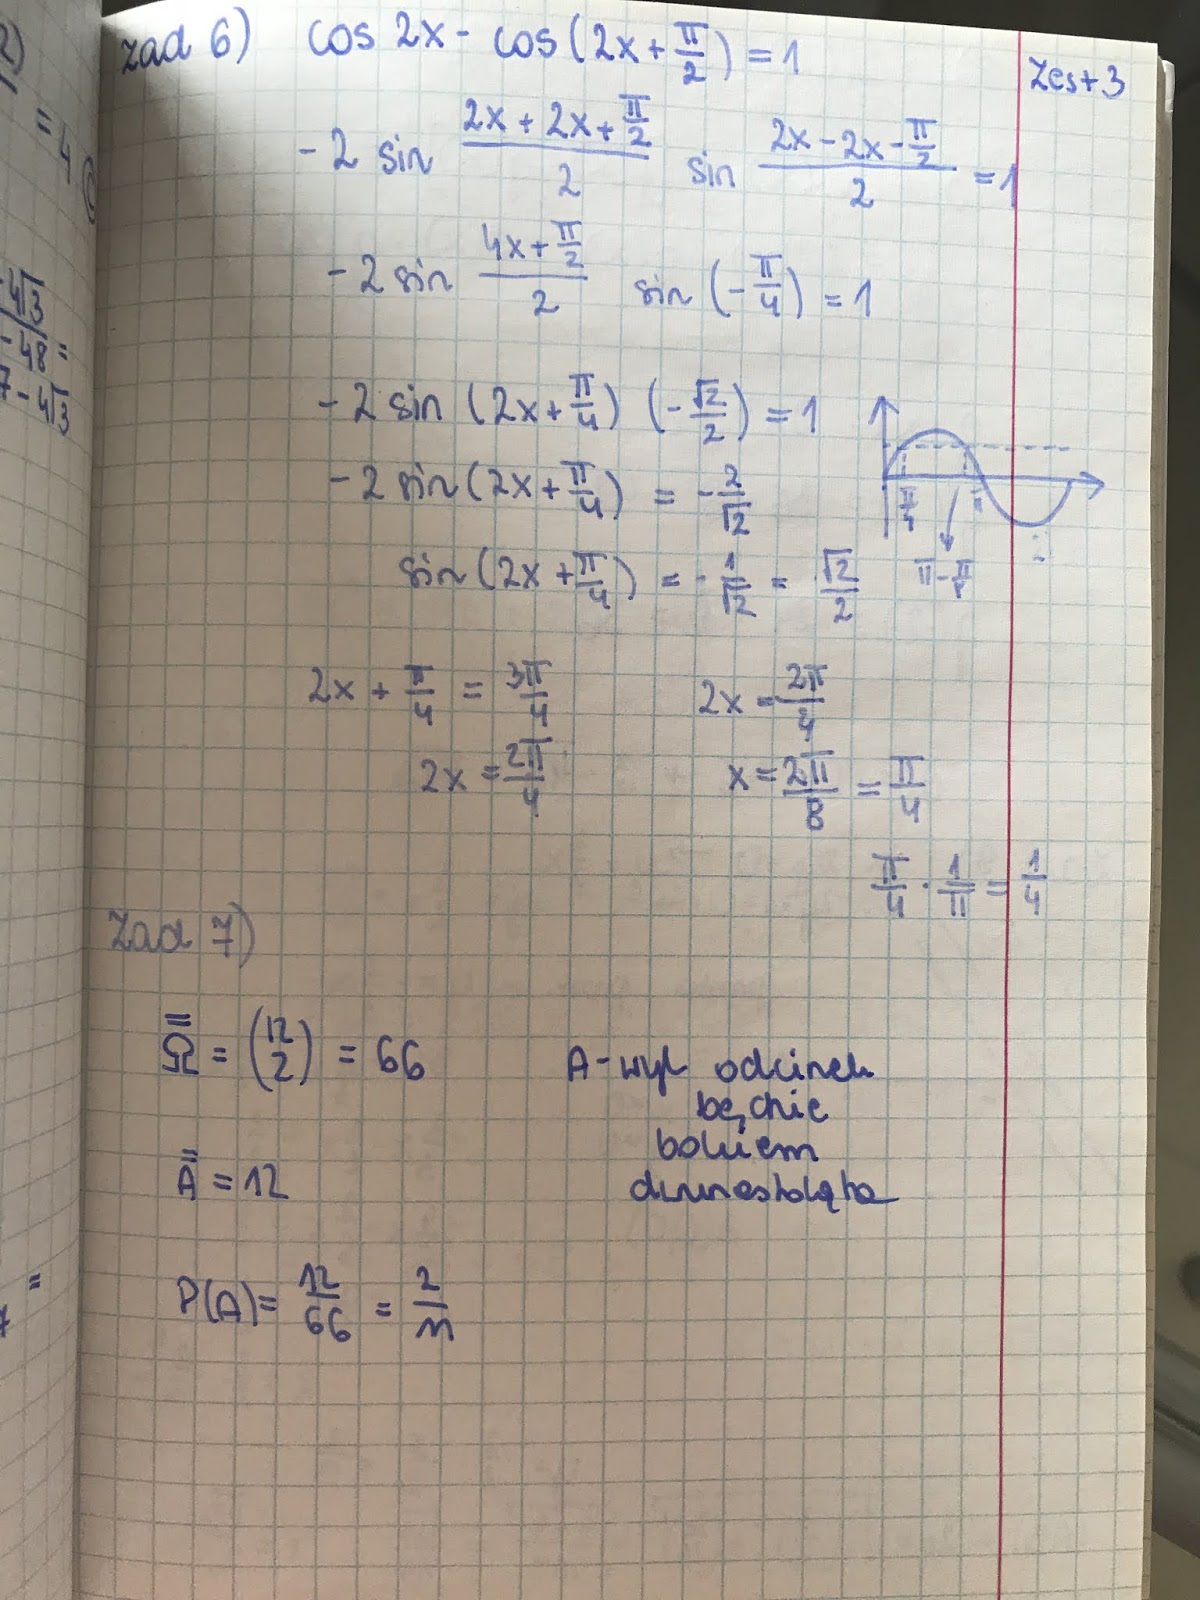 2)
= 4
-4√3
-48 =
7-4√3
=
7
zad 6) cos 2x - cos (2x + π/2) = 1
Zest 3
-2 sin (2x + 2x + π/2)/2 sin (2x - 2x - π/2)/2 = 1
-2 sin (4x + π/2)/2 sin (-π/4) = 1
-2 sin (2x + π/4) (-√2/2) = 1
-2 sin (2x + π/4) = -2/√2
sin (2x + π/4) = -1/√2 = √2/2
π/4 π
π - π/4
2x + π/4 = 3π/4 2x = 2π/4
2x = 2π/4 x = 2π/8 = π/4
π/4 · 1/π = 1/4
Zad 7)
Ω = (12 2) = 66 A - wyb odcinek
będzie
bokiem
A = 12 dwunastokąta
P(A) = 12/66 = 2/11